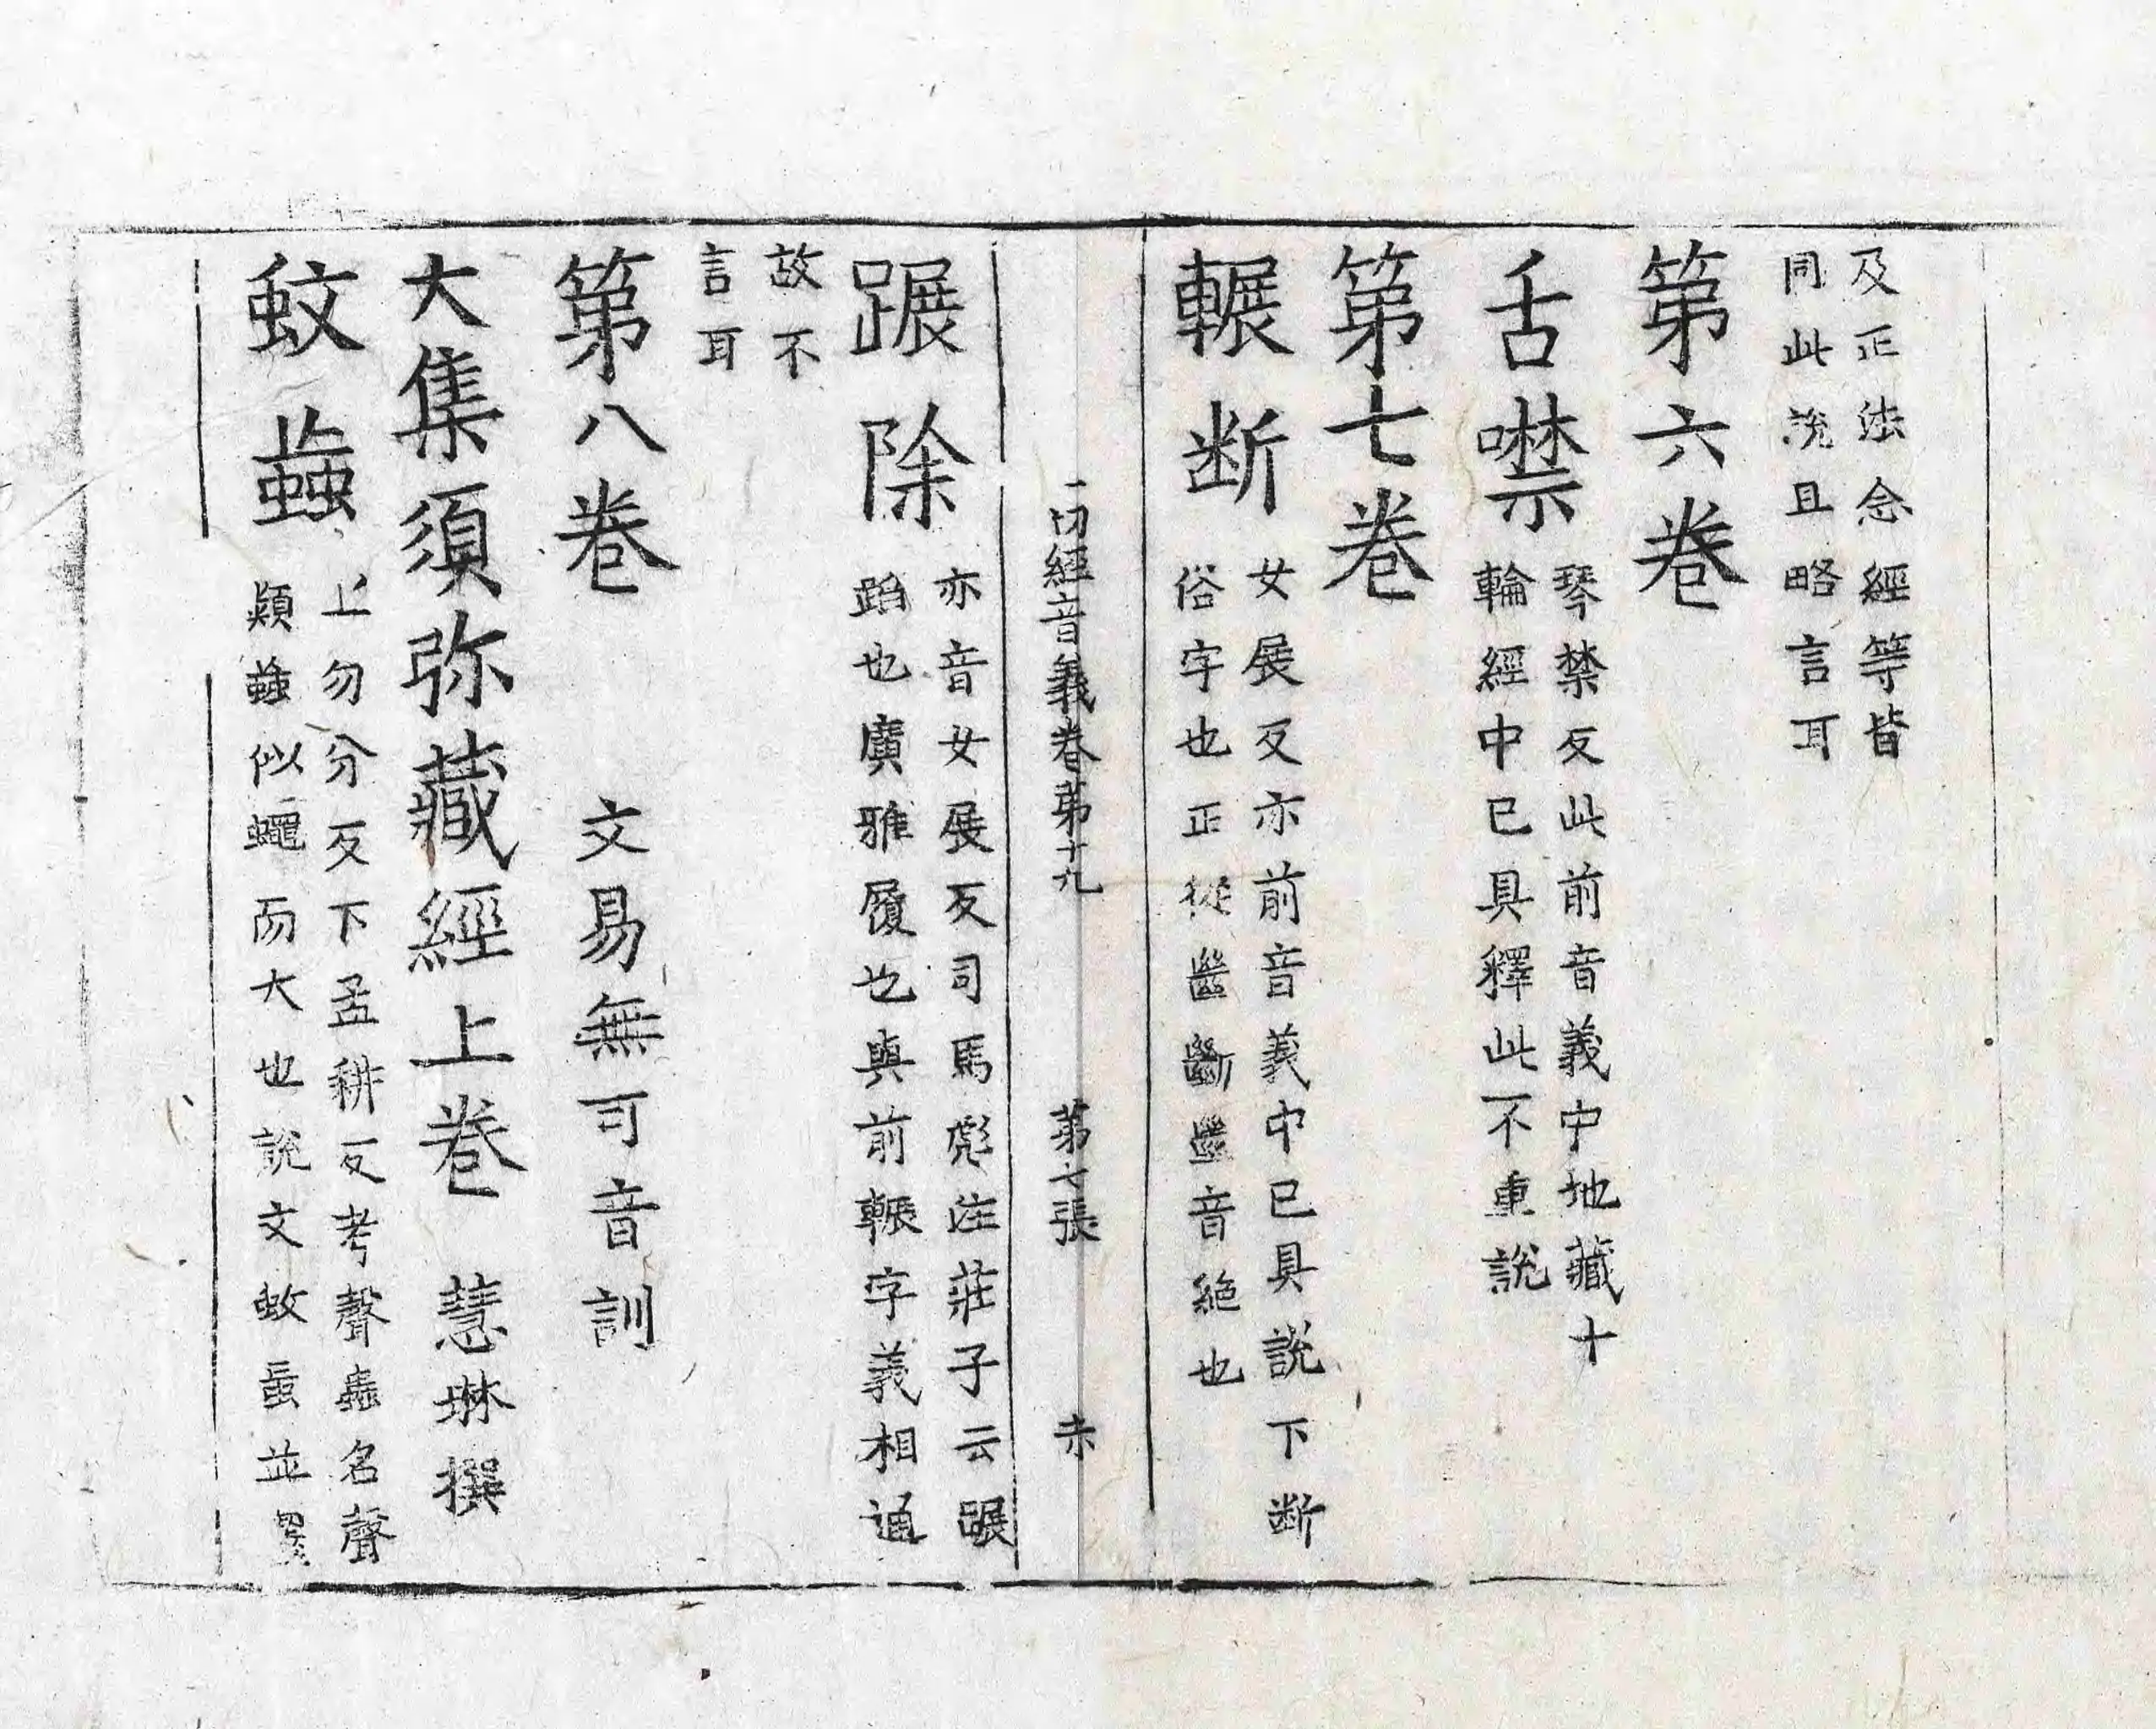 及正法念經等皆
同此說且略言耳
第六卷
舌噤 琴禁反此前音義中地藏十
輪經中已具釋此不重說
第七卷
輾斷 女展反亦前音義中已具說下断
俗字也正從㡭斷㡭音絕也
一切經音義卷第十九 第七張 未
蹍除 亦音女展反司馬彪注莊子云蹍
蹈也廣雅履也與前輾字義相通
故不
言耳
第八卷 文易無可音訓
大集須弥藏經上卷 慧琳撰
蚊蝱 上勿分反下孟耕反考聲蟲名聲
類蝱似蠅而大也說文蚊䖟並